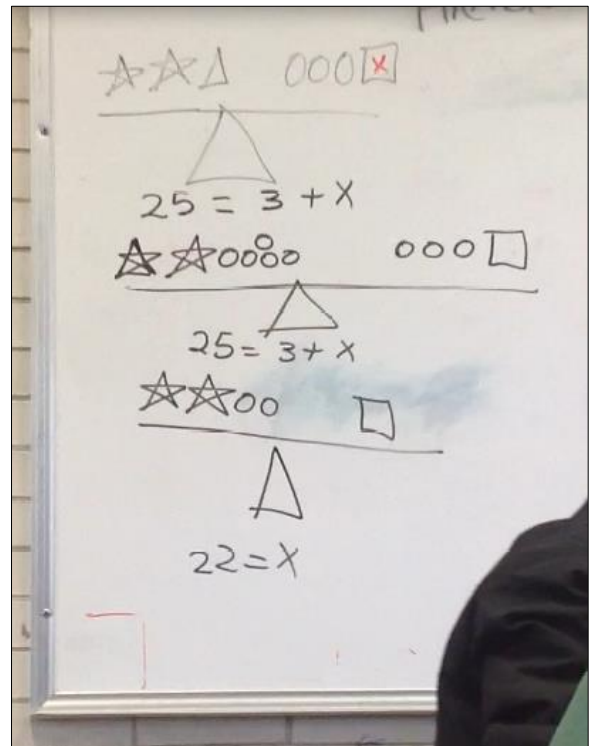 X
25 = 3 + X
25 = 3 + X
22 = X